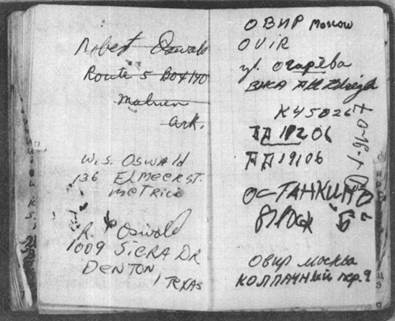 Robert Oswald
Route 5 Box 140
Malvern
Ark.
W.S. Oswald
136 ELMEER ST.
METRIE
R. Oswald
1009 SIERA DR
DENTON,
TEXAS
ОВИР Moscow
OVIR
ул. Огарёва
K45026
ДД 19106
ОСТАНКИНО
ОВИР МОСКВА
КОЛПАЧНЫЙ пер. 9